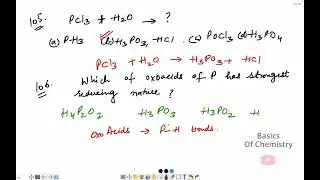 105. PCl3 + H2O → ?
(a) PH3 (b) H3PO3, HCl (c) POCl3 (d) H3PO4
PCl3 + H2O → H3PO3 + HCl
106. Which of oxoacids of P has strongest
reducing nature ?
H4P2O2 H3PO3 H3PO2 H
Oxo Acids → P-H bonds.
Basics
Of Chemistry